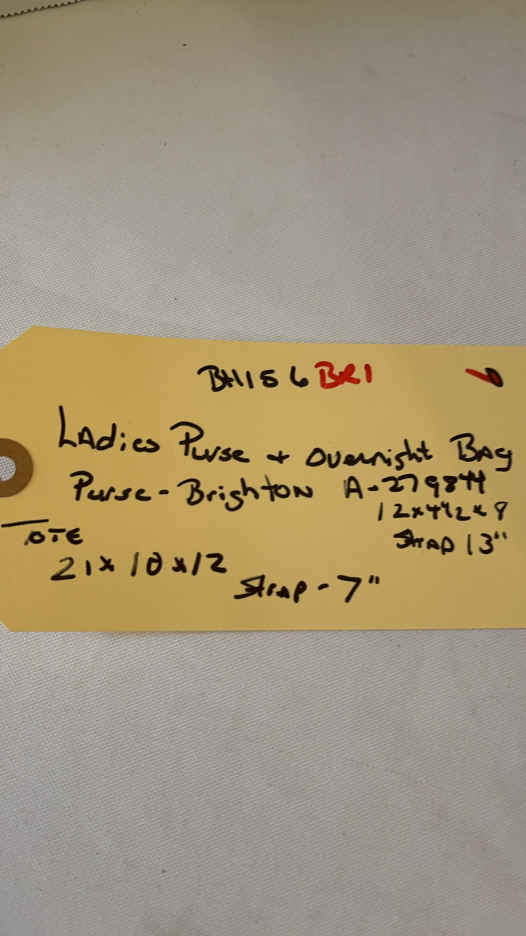 BH156 BR1
LAdies Purse + Overnight BAg
Purse - Brighton A-279844
12x4½x8
StrAp 13"
TOTE
21x10x12
StrAp - 7"